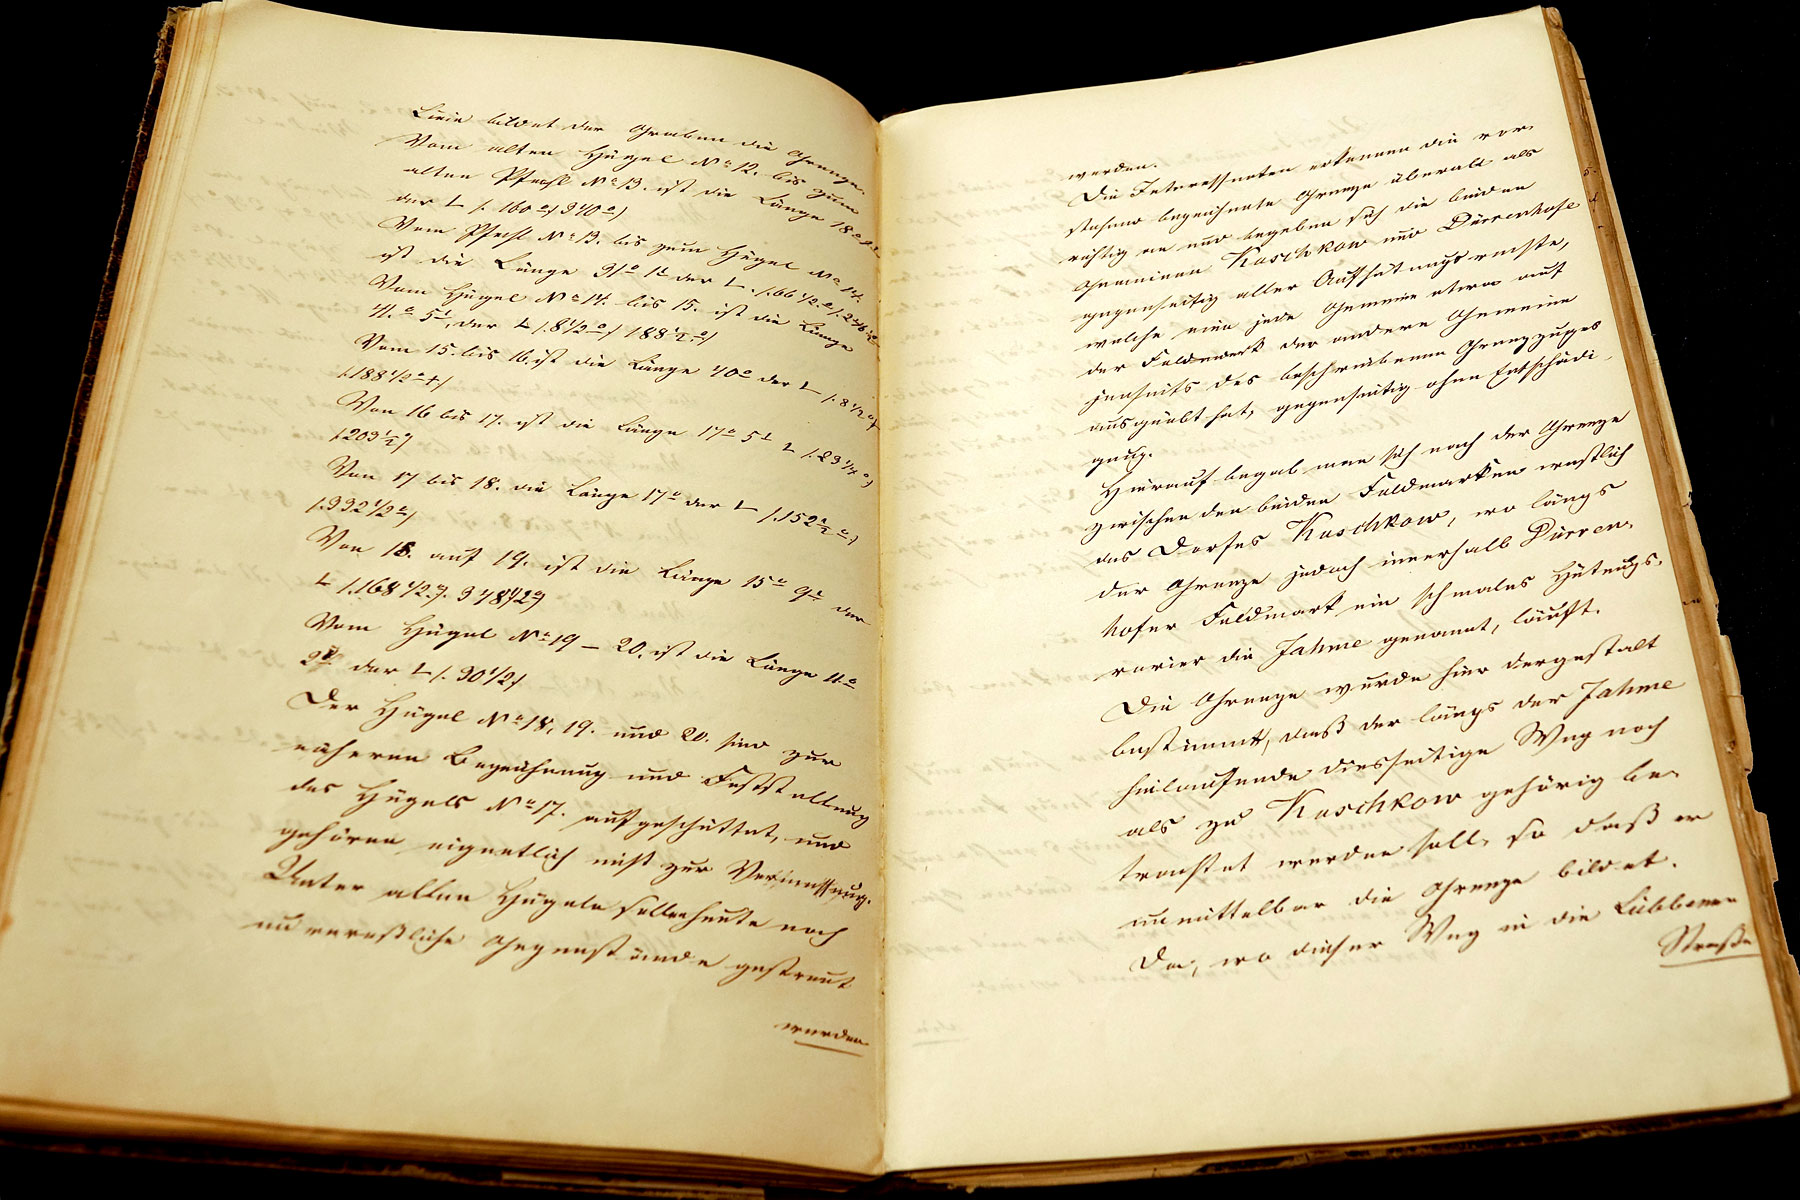 Linie bildet der Graben die Grenze.
Vom alten Hügel No 12. bis zum
alten Pfahl No 13. ist die Länge 18°
der L /. 160°/ 340°/
Vom Pfahl No 13. bis zum Hügel No 14.
ist die Länge 31° 1' der L. /.66 1/2°/.246 1/2°
Vom Hügel No 14. bis 15. ist die Länge
41.° 5', der L /.8 1/2°/ 188 1/2°/
Vom 15. bis 16. ist die Länge 40° der L /.8 1/2°/
/.188 1/2°+/
Von 16 bis 17. ist die Länge 17° 5' L /.23 1/4°/
/.203 1/2°/
Von 17 bis 18. die Länge 17° der L /.152 1/2°/
/.332 1/2°/
Von 18. auf 19. ist die Länge 15° 9' der
L /.168 1/2°/. 348 1/2°/
Vom Hügel No 19 – 20. ist die Länge 11°
2' der L /. 30 1/2/
Der Hügel No 18, 19. und 20. sind zur
näheren Bezeichnung und Feststellung
des Hügels No 17. aufgeschüttet, und
gehören eigentlich nicht zur Vermessung.
Unter allen Hügeln sollen heute noch
unverweßliche Gegenstände gestreut
werden
werden.
Die Interessenten erkennen die vor-
stehend bezeichnete Grenze überall als
richtig an und begeben sich die beiden
Gemeinen Kuschkow und Dürrenhofe
gegenseitig aller Aufhütungsrechte,
welche eine jede Gemeine etwa auf
der Feldmark der andern Gemeine
jenseits des beschriebenen Grenzzuges
ausgeübt hat, gegenseitig ohne Entschädi-
gung.
Hierauf begab man sich nach der Grenze
zwischen den beiden Feldmarken westlich
des Dorfes Kuschkow, wo längs
der Grenze jedoch innerhalb Dürren-
hofer Feldmark ein schmales Hütungs-
revier die Jahme genannt, läuft.
Die Grenze wurde hier dergestalt
bestimmt, daß der längs der Jahme
hinlaufende diesseitige Weg noch
als zu Kuschkow gehörig be-
trachtet werden soll, so daß er
unmittelbar die Grenze bildet.
Da, wo dieser Weg in die Lübbener
Straße